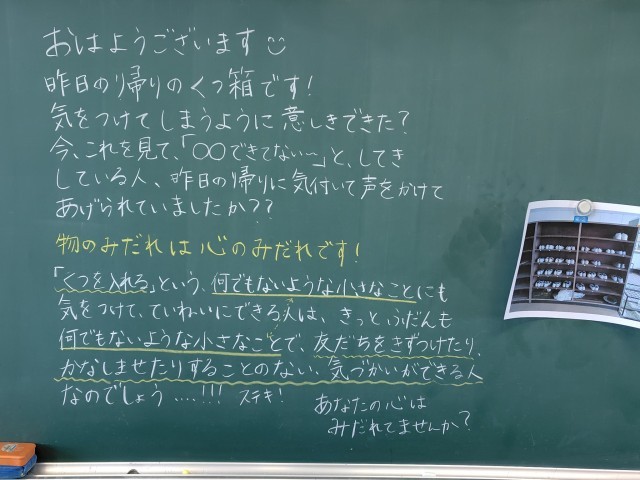 おはようございます☺
昨日の帰りのくつ箱です!
気をつけてしまうように意しきできた?
今、これを見て、「〇〇できてない〜」と、してき
している人、昨日の帰りに気付いて声をかけて
あげられていましたか??
物のみだれは心のみだれです!
「くつを入れる」という、何でもないような小さなことにも
気をつけて、ていねいにできる人は、きっとふだんも
何でもないような小さなことで、友だちをきずつけたり、
かなしませたりすることのない、気づかいができる人
なのでしょう....!!! ステキ!
あなたの心は
みだれてませんか?